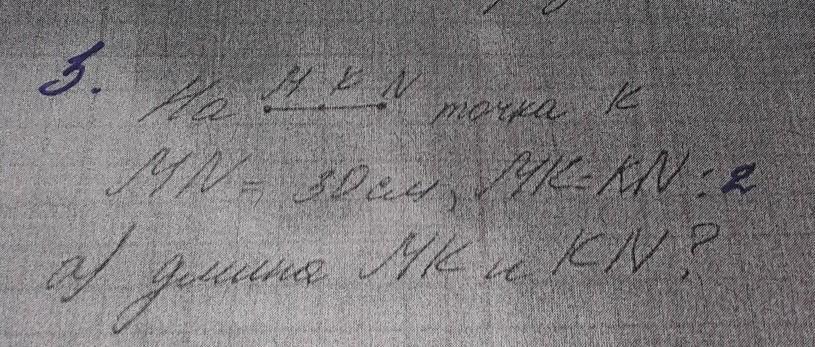 3.
M K N
На точка K
MN = 30см, MK = KN : 2
а) длина MK и KN?